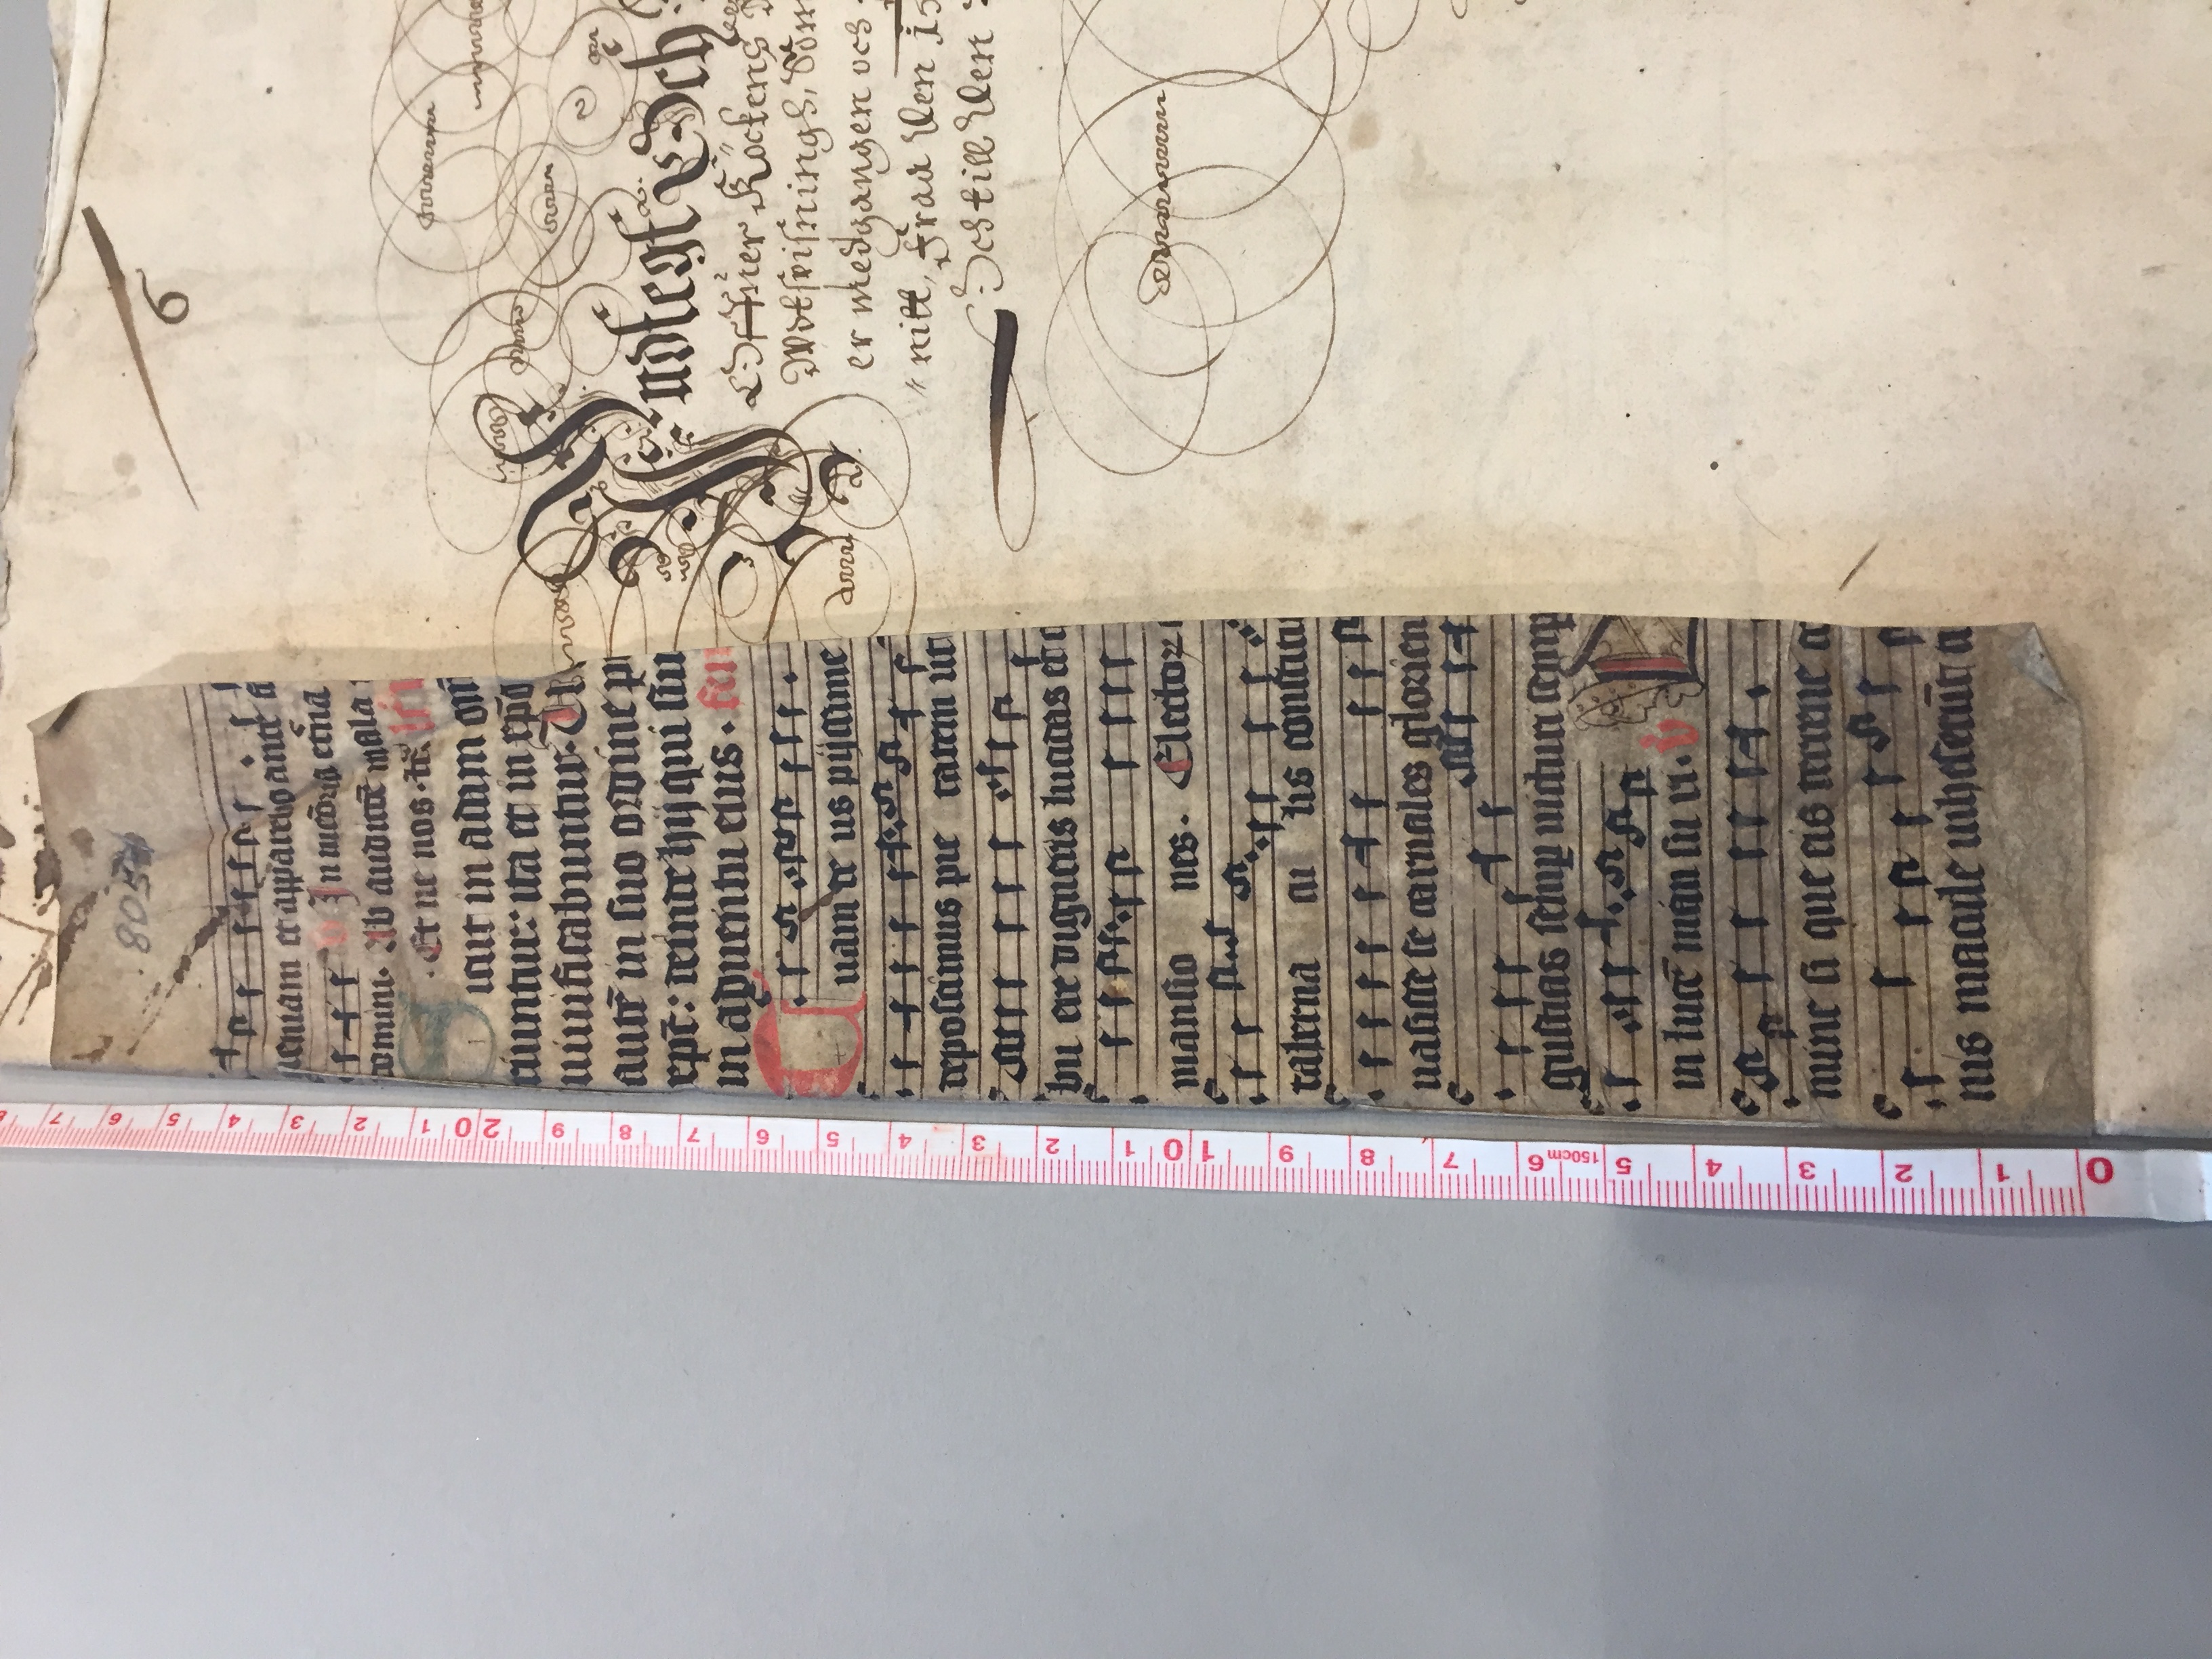 8054
ueniam et apparebo ante fa
v In mēoria etn̄a
domini. Ab auditōe mala
Et ne nos. tēp.
Sicut in adam om̄
riuntur: ita et in xpō
uiuificabuntur. Un
autē in suo ordine p
xpc̄: deinde hij qui sun
in aduentu eius.
Tuam deus pijssime
deposcimus pietatem ut
buere digneris lucidas et
mansiones. Elector
tabernaculis constitu
uasisse se carnales glorien
gustias semp uicturi semp
in lucē mansuri. v
mine si que eis terrene co
nis macule inheserūt a
6
Och
Öffuer Köckens
Wdtspisningh, Som
er medgangen och
nitt, fraa den 15
Och till den